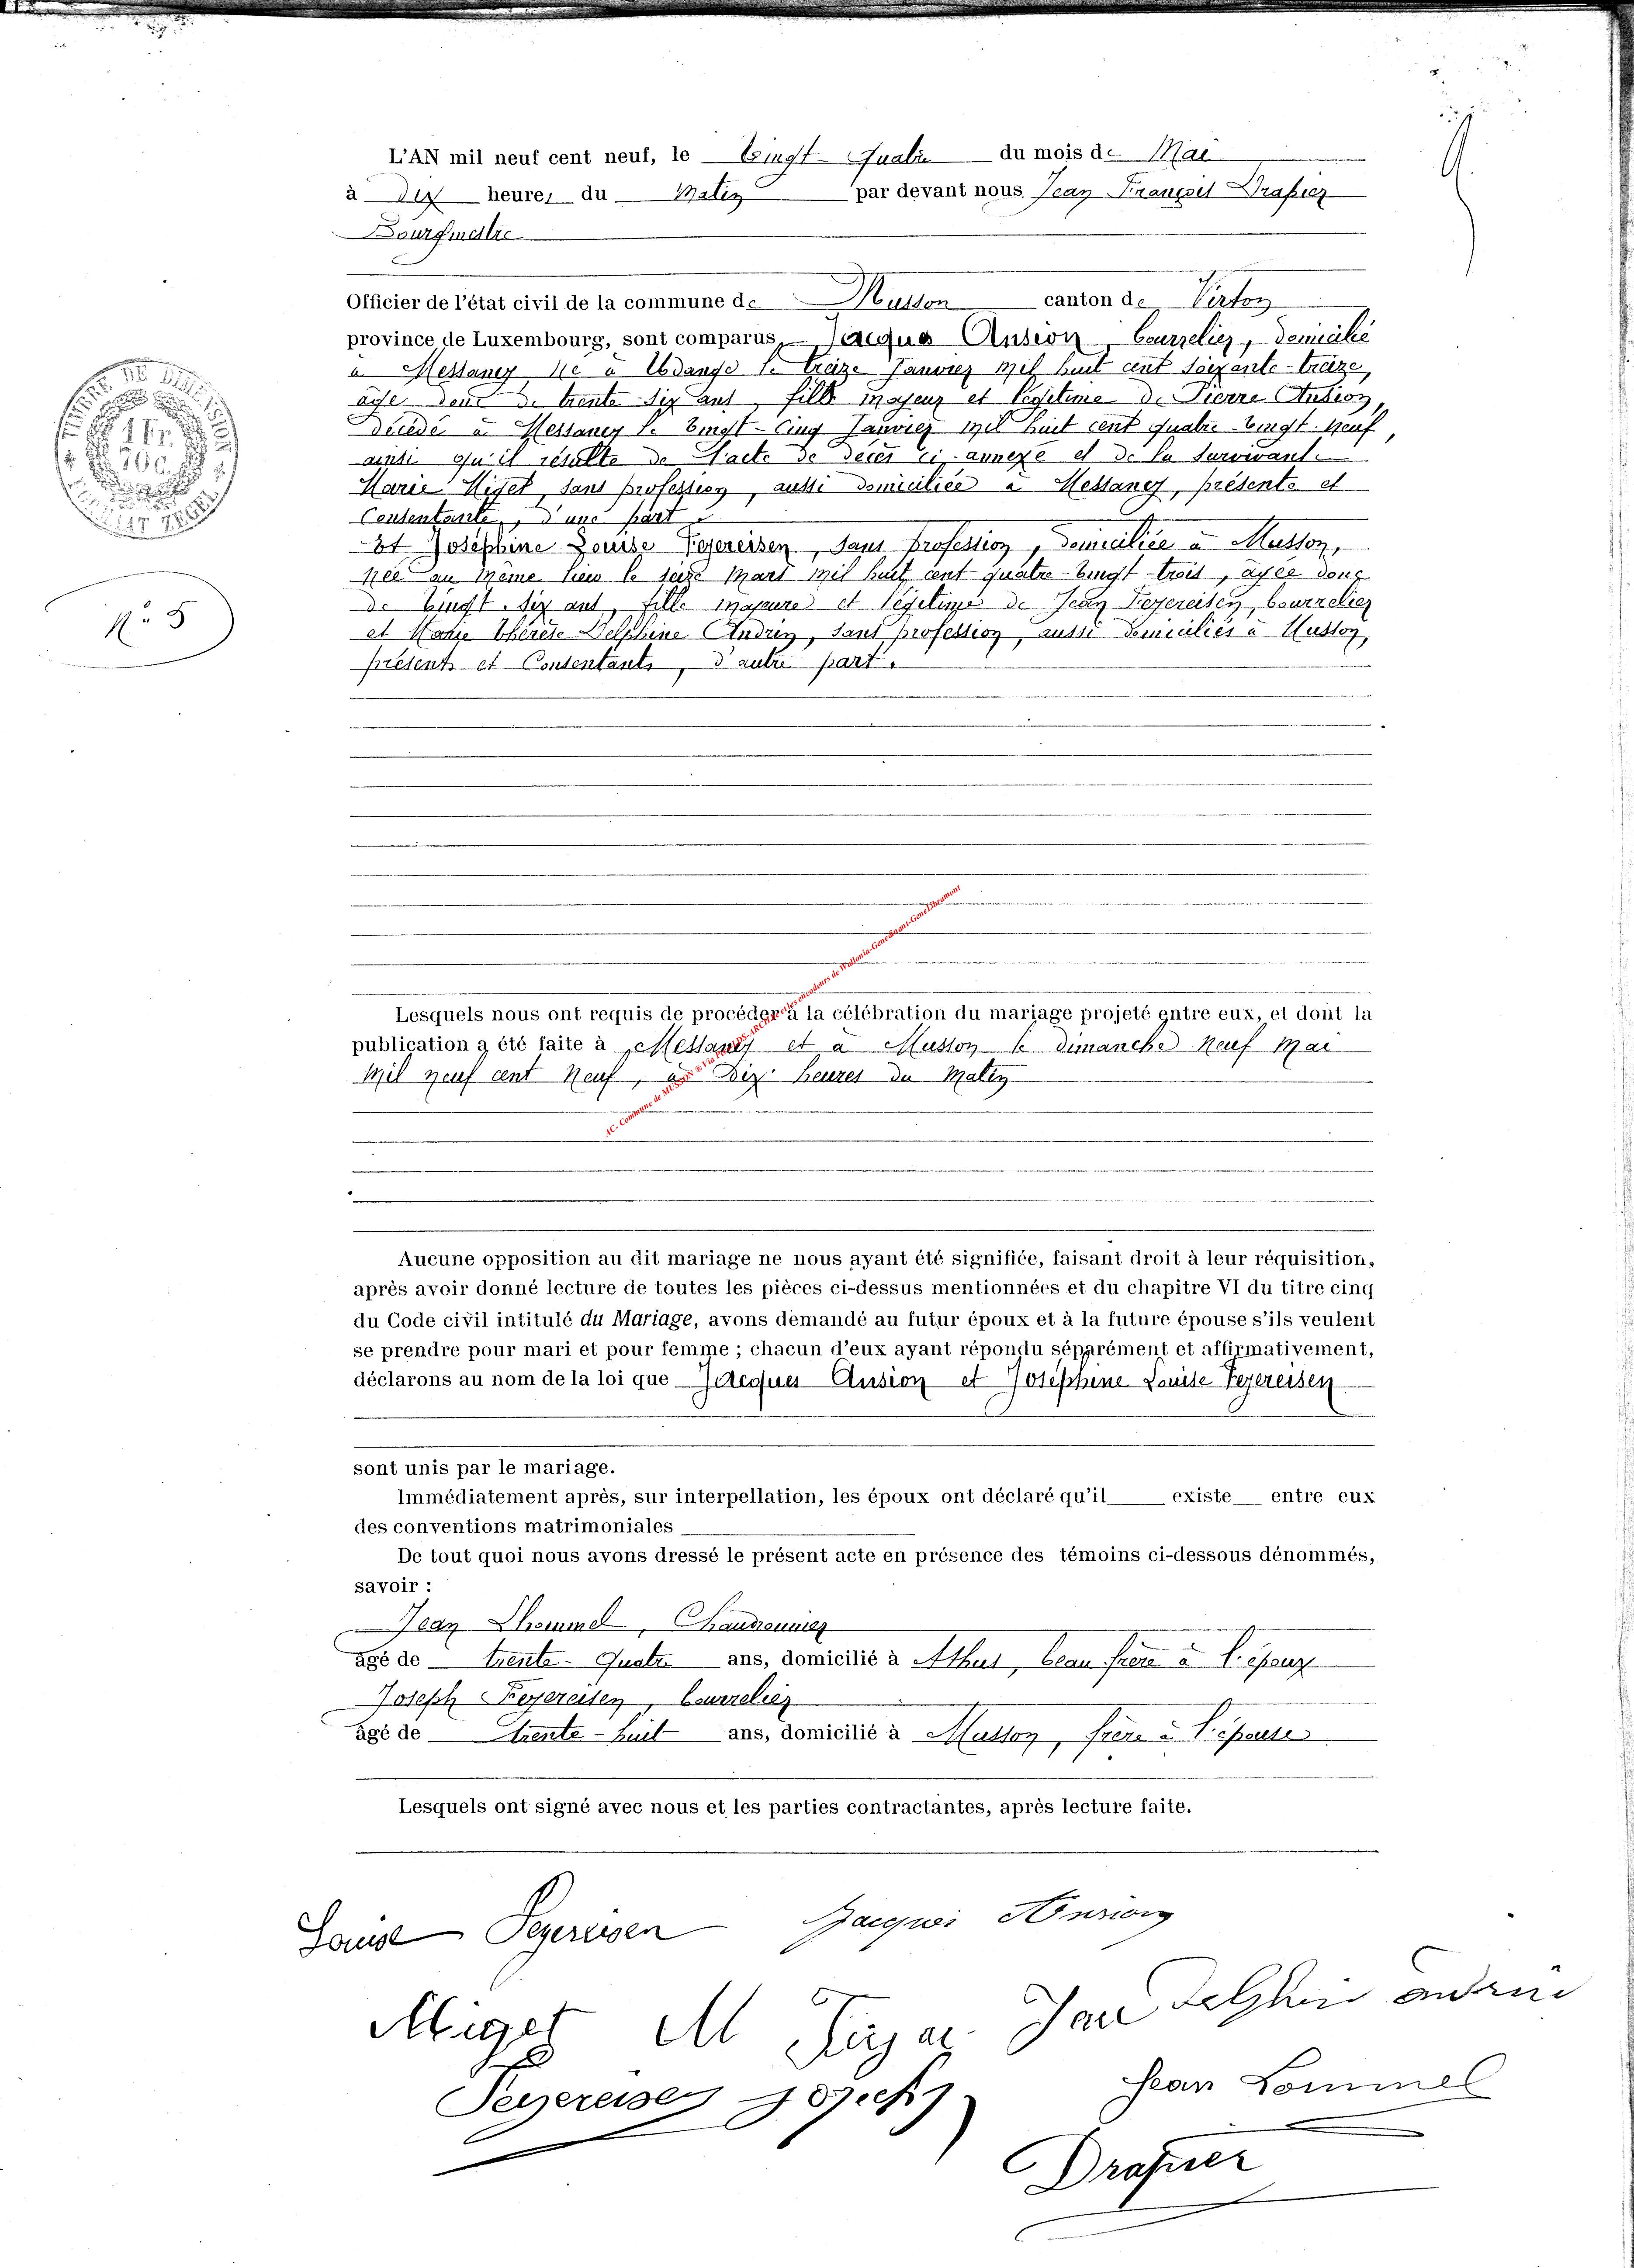 L'AN mil neuf cent neuf, le Vingt-Quatre du mois de Mai
à Dix heures du Matin par devant nous Jean François Drapier
Bourgmestre
Officier de l'état civil de la commune de Musson canton de Virton
province de Luxembourg, sont comparus, Jacques Ansion, bourrelier, domicilié
à Messancy né à Udange le treize Janvier mil huit cent soixante-treize,
âgé donc de trente-six ans, fils majeur et légitime de Pierre Ansion,
décédé à Messancy le vingt-cinq Janvier mil huit cent quatre-vingt-neuf,
ainsi qu'il résulte de l'acte de décès ci-annexé et de la survivante
Marie Miget, sans profession, aussi domiciliée à Messancy, présente et
consentante, d'une part
Et Joséphine Louise Feyereisen, sans profession, domiciliée à Musson,
née au même lieu le seize Mars mil huit cent quatre-vingt-trois, âgée donc
de vingt-six ans, fille majeure et légitime de Jean Feyereisen, bourrelier
et Marie Thérèse Delphine Andrin, sans profession, aussi domiciliés à Musson,
présents et consentants, d'autre part.
Lesquels nous ont requis de procéder à la célébration du mariage projeté entre eux, et dont la
publication a été faite à Messancy et à Musson le dimanche neuf Mai
mil neuf cent neuf, à Dix heures du Matin
Aucune opposition au dit mariage ne nous ayant été signifiée, faisant droit à leur réquisition,
après avoir donné lecture de toutes les pièces ci-dessus mentionnées et du chapitre VI du titre cinq
du Code civil intitulé du Mariage, avons demandé au futur époux et à la future épouse s'ils veulent
se prendre pour mari et pour femme ; chacun d'eux ayant répondu séparément et affirmativement,
déclarons au nom de la loi que Jacques Ansion et Joséphine Louise Feyereisen
sont unis par le mariage.
Immédiatement après, sur interpellation, les époux ont déclaré qu'il existe entre eux
des conventions matrimoniales
De tout quoi nous avons dressé le présent acte en présence des témoins ci-dessous dénommés,
savoir :
Jean Lhommel, Chaudronnier
âgé de trente-Quatre ans, domicilié à Athus, beau frère à l'époux
Joseph Feyereisen, bourrelier
âgé de trente-huit ans, domicilié à Musson, frère à l'épouse
Lesquels ont signé avec nous et les parties contractantes, après lecture faite.
N° 5
1 Fr.
Louise Feyereisen Jacques Ansion
Miget M Jean Delphine andrin
Feyereisen Joseph
Jean Lommel
Drapier